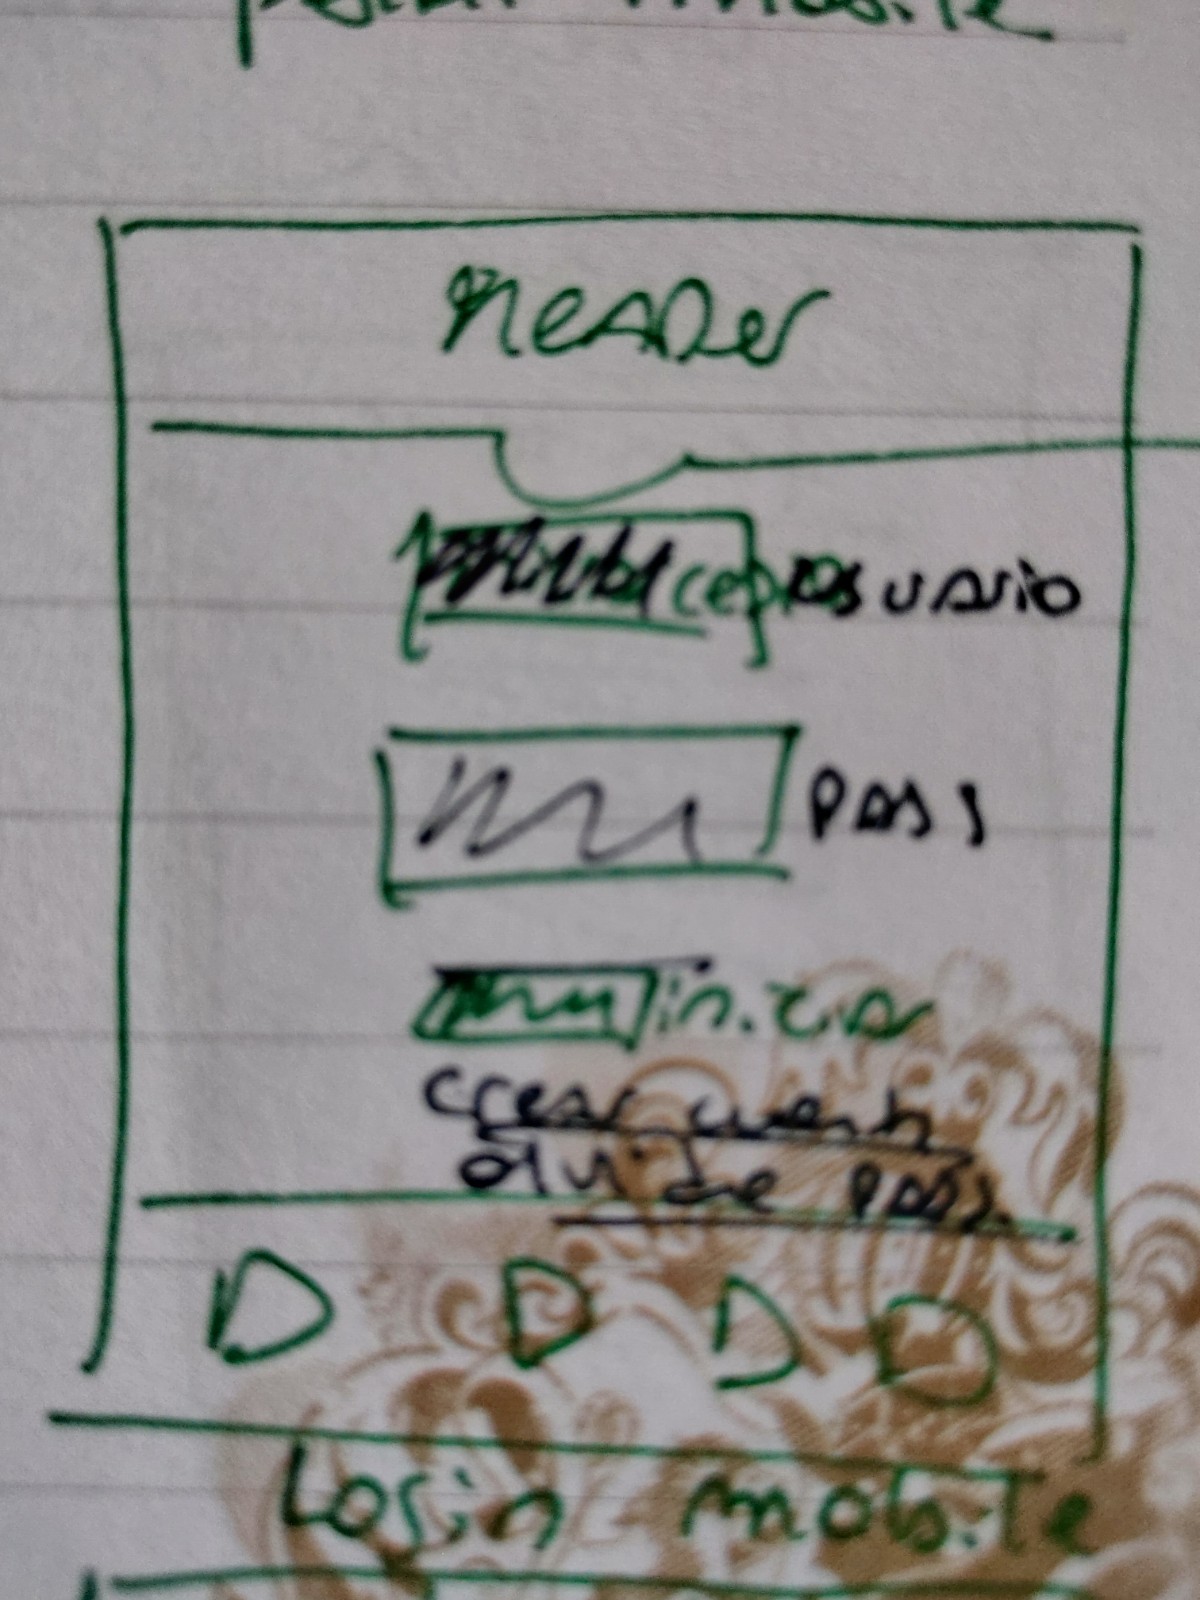 mobile
Header
usuario
PASS
iniciar
crear cuenta
olvide PASS.
D D D D
Login mobile